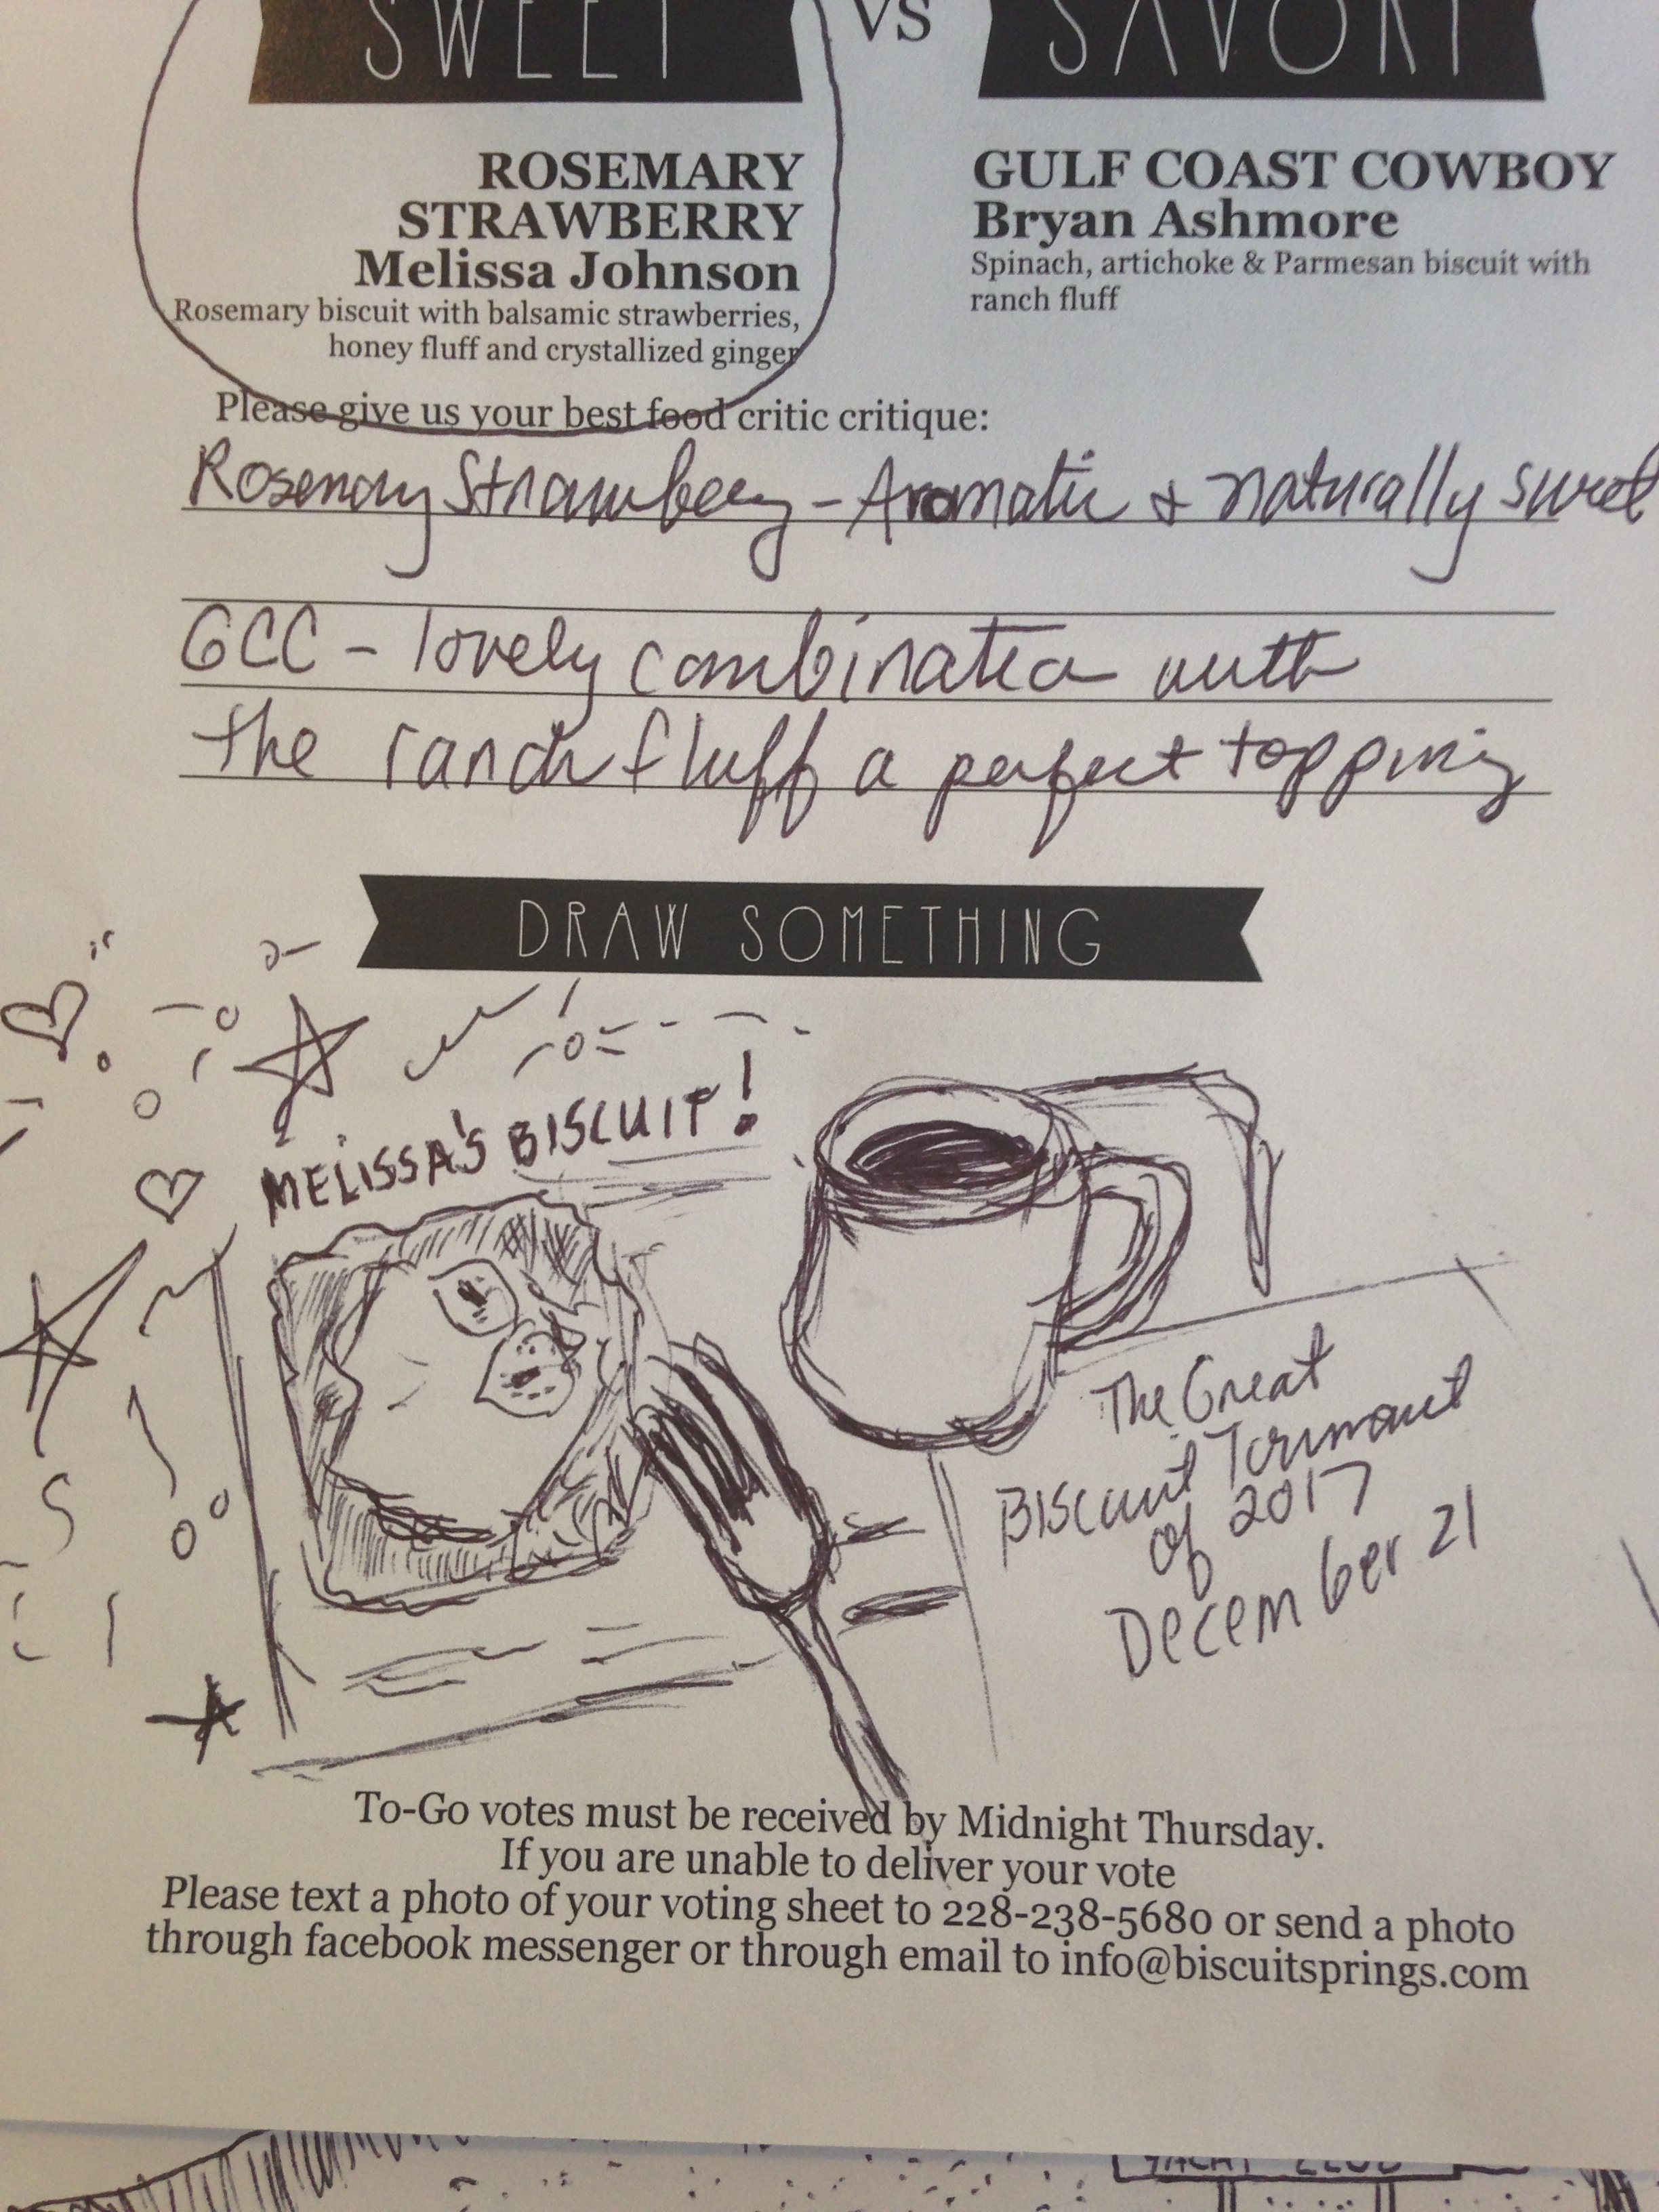 SWEET VS SAVORY
ROSEMARY
STRAWBERRY
Melissa Johnson
Rosemary biscuit with balsamic strawberries,
honey fluff and crystallized ginger
GULF COAST COWBOY
Bryan Ashmore
Spinach, artichoke & Parmesan biscuit with
ranch fluff
Please give us your best food critic critique:
Rosemary Strawberry - Aromatic & naturally sweet
GCC - lovely combination with
the ranch fluff a perfect topping
DRAW SOMETHING
MELISSA'S BISCUIT!
The Great
Biscuit Tournament
of 2017
December 21
To-Go votes must be received by Midnight Thursday.
If you are unable to deliver your vote
Please text a photo of your voting sheet to 228-238-5680 or send a photo
through facebook messenger or through email to info@biscuitsprings.com
YACHT CLUB